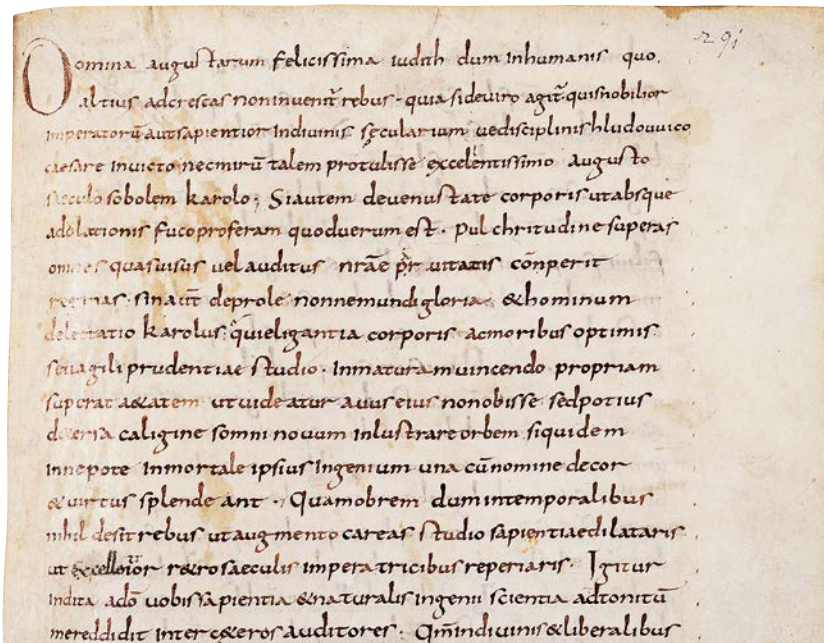 Domina augustarum felicissima iudith dum inhumanis quo
altius adcrescas noninvenit̄ rebus · quia sideviro agit̄ quisnobilior
imperatorū autsapientior Indivinis sęcularium vedisciplinishludouuico
caesare Invicto necmirū talem protulisse excelentissimo augusto
saeculo sobolem karolo; Siautem devenustate corporis utabsque
adolationis fucoproferam quodverumest · pulchritudine superas
omnes quasvisus velauditus nrāe pr̄ vitatis cōnperit
reginas · sinaut̄ deprole nonnemundigloria · &hominum
delectatio karolus · quieligantia corporis acmoribus optimis
seuagili prudentiae studio · Inmaturamvincendo propriam
superat a&atem utvideatur avus eius nonobisse sedpotius
diversa caligine somni novum Inlustrareorbem siquidem
Innepote Inmortale ipsius Ingenium una cūnomine decor
&virtus splendeant · Quamobrem dumintemporalibus
nihil desit rebus utaugmento careas studio sapientiaedilataris
ut excellentior r&rosaeculis Imperatricibus reperiaris · Igitur
Indita adō vobissapientia &naturalis Ingenii scientia adtonitū
mereddidit Inter c&eros auditores · Qm̄indivinis&liberalibus